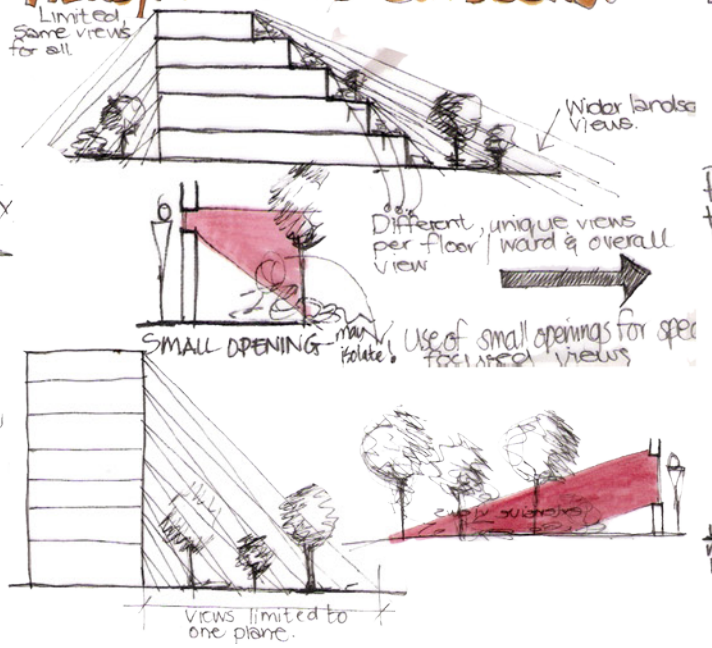 Limited,
same views
for all
Wider landsc
views.
Different, unique views
per floor / ward & overall
view
SMALL OPENING - may
isolate!
Use of small openings for spec
focused views
views limited to
one plane.